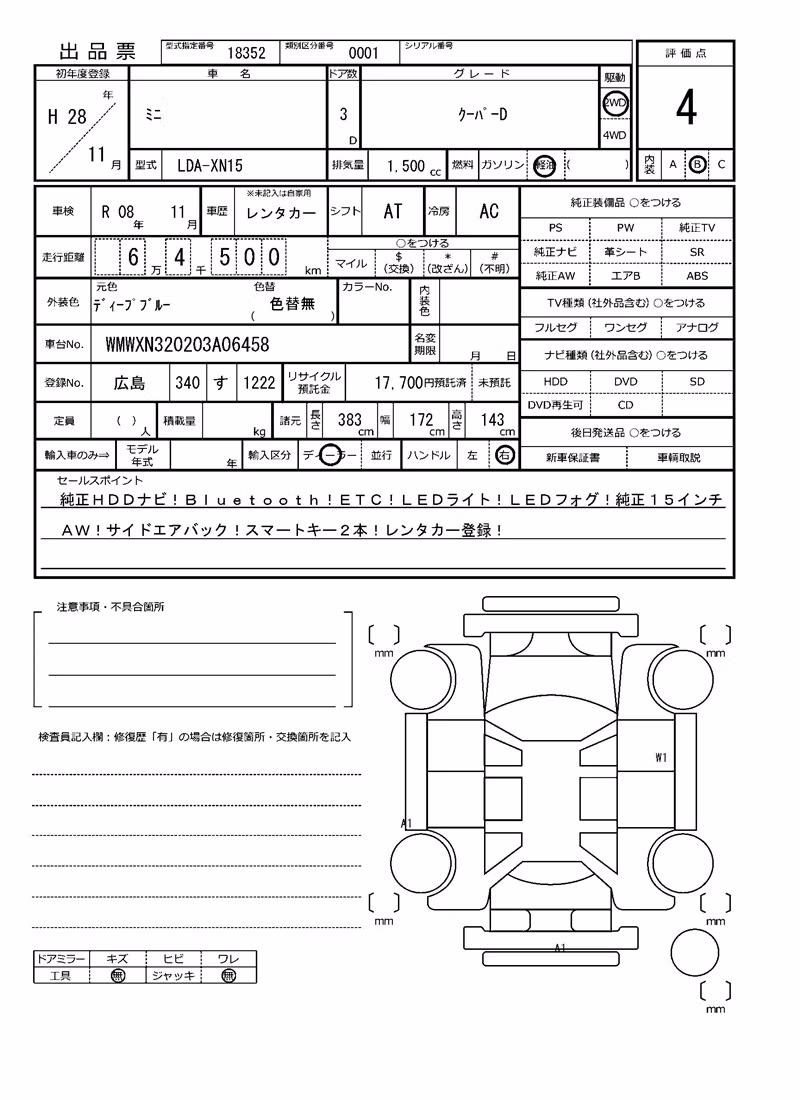 出品票 型式指定番号 18352 類別区分番号 0001 シリアル番号
評価点
初年度登録 車名 ドア数 グレード 駆動
H 28 年 11 月 ミニ 3 D クーパーD 2WD 4WD
4
型式 LDA-XN15 排気量 1,500 cc 燃料 ガソリン 軽油 ( )
内装 A B C
車検 R 08 年 11 月 車歴 ※未記入は自家用 レンタカー シフト AT 冷房 AC
純正装備品 ○をつける
PS PW 純正TV
純正ナビ 革シート SR
純正AW エアB ABS
走行距離 6 万 4 千 5 0 0 km
○をつける
マイル $ (交換) * (改ざん) # (不明)
外装色 元色 ディープブルー 色替 色替無 ( ) カラーNo. 内装色
TV種類 (社外品含む) ○をつける
フルセグ ワンセグ アナログ
車台No. WMWXN320203A06458 名変期限 月 日
ナビ種類 (社外品含む) ○をつける
HDD DVD SD
DVD再生可 CD
登録No. 広島 340 す 1222 リサイクル預託金 17,700円預託済 未預託
定員 ( ) 人 積載量 kg 諸元 長さ 383 cm 幅 172 cm 高さ 143 cm
後日発送品 ○をつける
新車保証書 車輌取説
輸入車のみ⇒ モデル年式 年 輸入区分 ディーラー 並行 ハンドル 左 右
セールスポイント
純正HDDナビ!Bluetooth!ETC!LEDライト!LEDフォグ!純正15インチ
AW!サイドエアバック!スマートキー2本!レンタカー登録!
注意事項・不具合箇所
mm mm
検査員記入欄:修復歴「有」の場合は修復箇所・交換箇所を記入
W1
A1
mm mm
A1
mm
ドアミラー キズ ヒビ ワレ
工具 無 ジャッキ 無